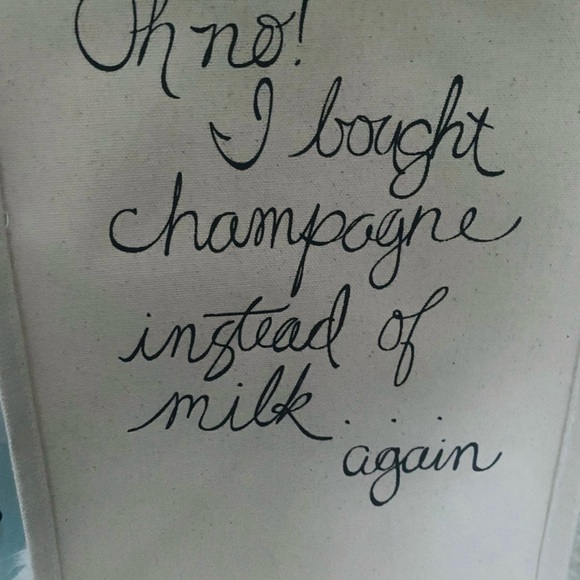 Oh no!
I bought
champagne
instead of
milk...
again